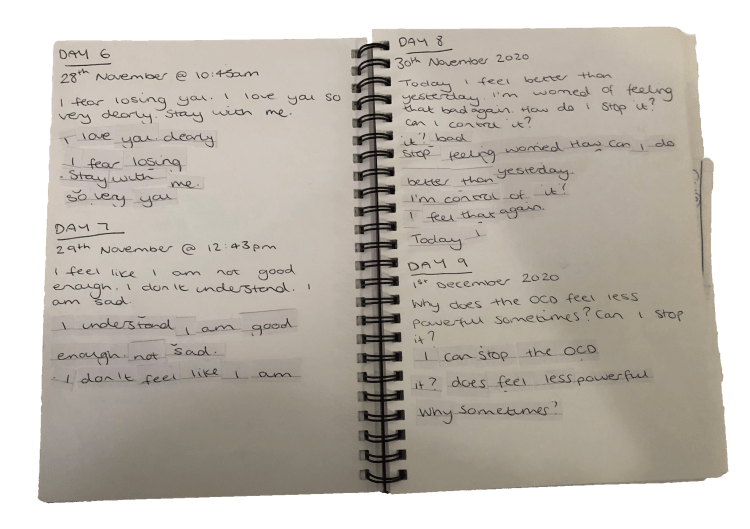 DAY 6
28th November @ 10:45am
I fear losing you. I love you so
very dearly. Stay with me.
I love you dearly
I fear losing
. Stay with me.
so very you
DAY 7
29th November @ 12:43pm
I feel like I am not good
enough. I don't understand. I
am sad
I understand I am good
enough. not sad.
I don't feel like I am
DAY 8
30th November 2020
Today I feel better than
yesterday. I'm worried of feeling
that bad again. How do I stop it?
Can I control it?
it? bad
stop feeling worried How Can I do
better than yesterday.
I'm control of it?
I feel that again.
Today I
DAY 9
1st December 2020
Why does the OCD feel less
powerful sometimes? Can I stop
it?
I can stop the OCD
it? does feel less powerful
Why sometimes?